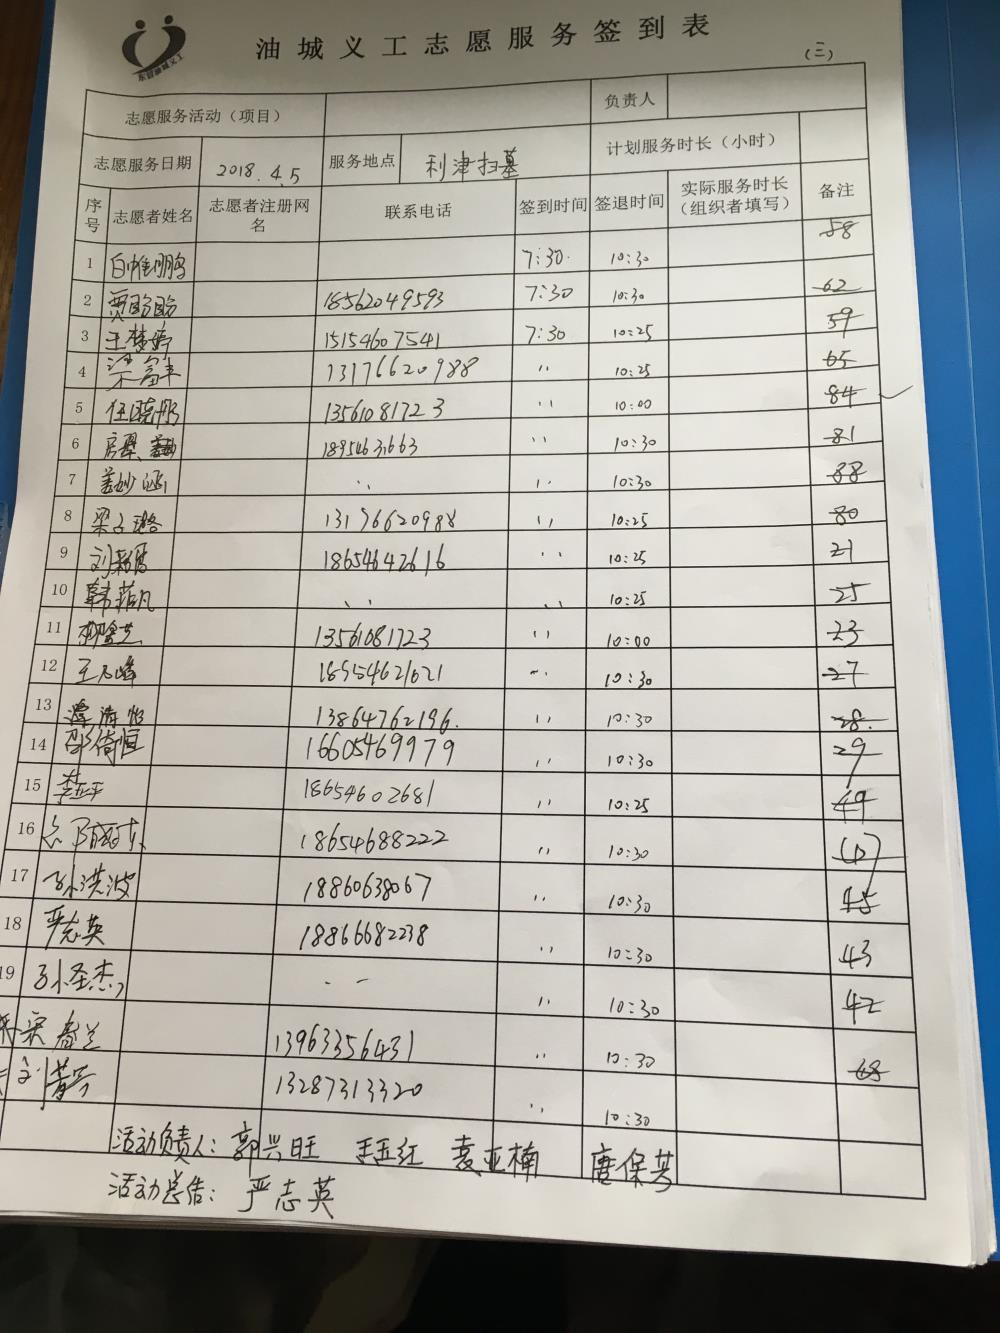 油城义工志愿服务签到表
(三)
东营油城义工
志愿服务活动（项目） 负责人
志愿服务日期 2018.4.5 服务地点 利津扫墓 计划服务时长（小时）
序号 志愿者姓名 志愿者注册网名 联系电话 签到时间 签退时间 实际服务时长（组织者填写） 备注
58
1 7:30 10:30
2 18562049593 7:30 10:30 62
3 王梦婷 15154607541 7:30 10:25 59
4 梁富丰 13176620988 〃 10:25 65
5 任晓彤 13561081723 〃 10:00 84
6 1895463,663 〃 10:30 81
7 姜妙涵 〃 〃 10:30 88
8 梁子璐 13176620988 〃 10:25 80
9 18654642616 〃 10:25 21
10 韩菲凡 〃 〃 10:25 25
11 13561081723 〃 10:00 23
12 18954621621 〃 10:30 27
13 13864762196. 〃 10:30 28
14 邵倚恒 16605469979 〃 10:30 29
15 18654602681 〃 10:25 49
16 18654688222 〃 10:30 47
17 孙洪波 18860638067 〃 10:30 45
18 严志英 18866682238 〃 10:30 43
19 孙圣杰 〃 〃 10:30 42
宋春兰 13963356431 〃 10:30
刘菁芳 13287313320 〃 10:30 68
活动负责人：郭兴旺 王玉红 袁亚楠 唐保芳
活动总结：严志英